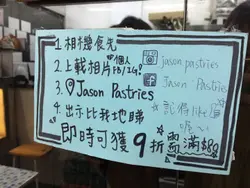 1 相機食先
jason pastries
2. 上載相片 個人 FB/IG!
Jason Pastries
3. Jason Pastries
記得like
4. 出示比我地睇
即時可獲9折 需滿$80